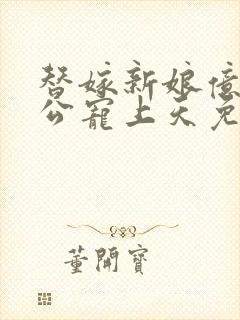 替嫁新娘億
公寵上天免
董開寶